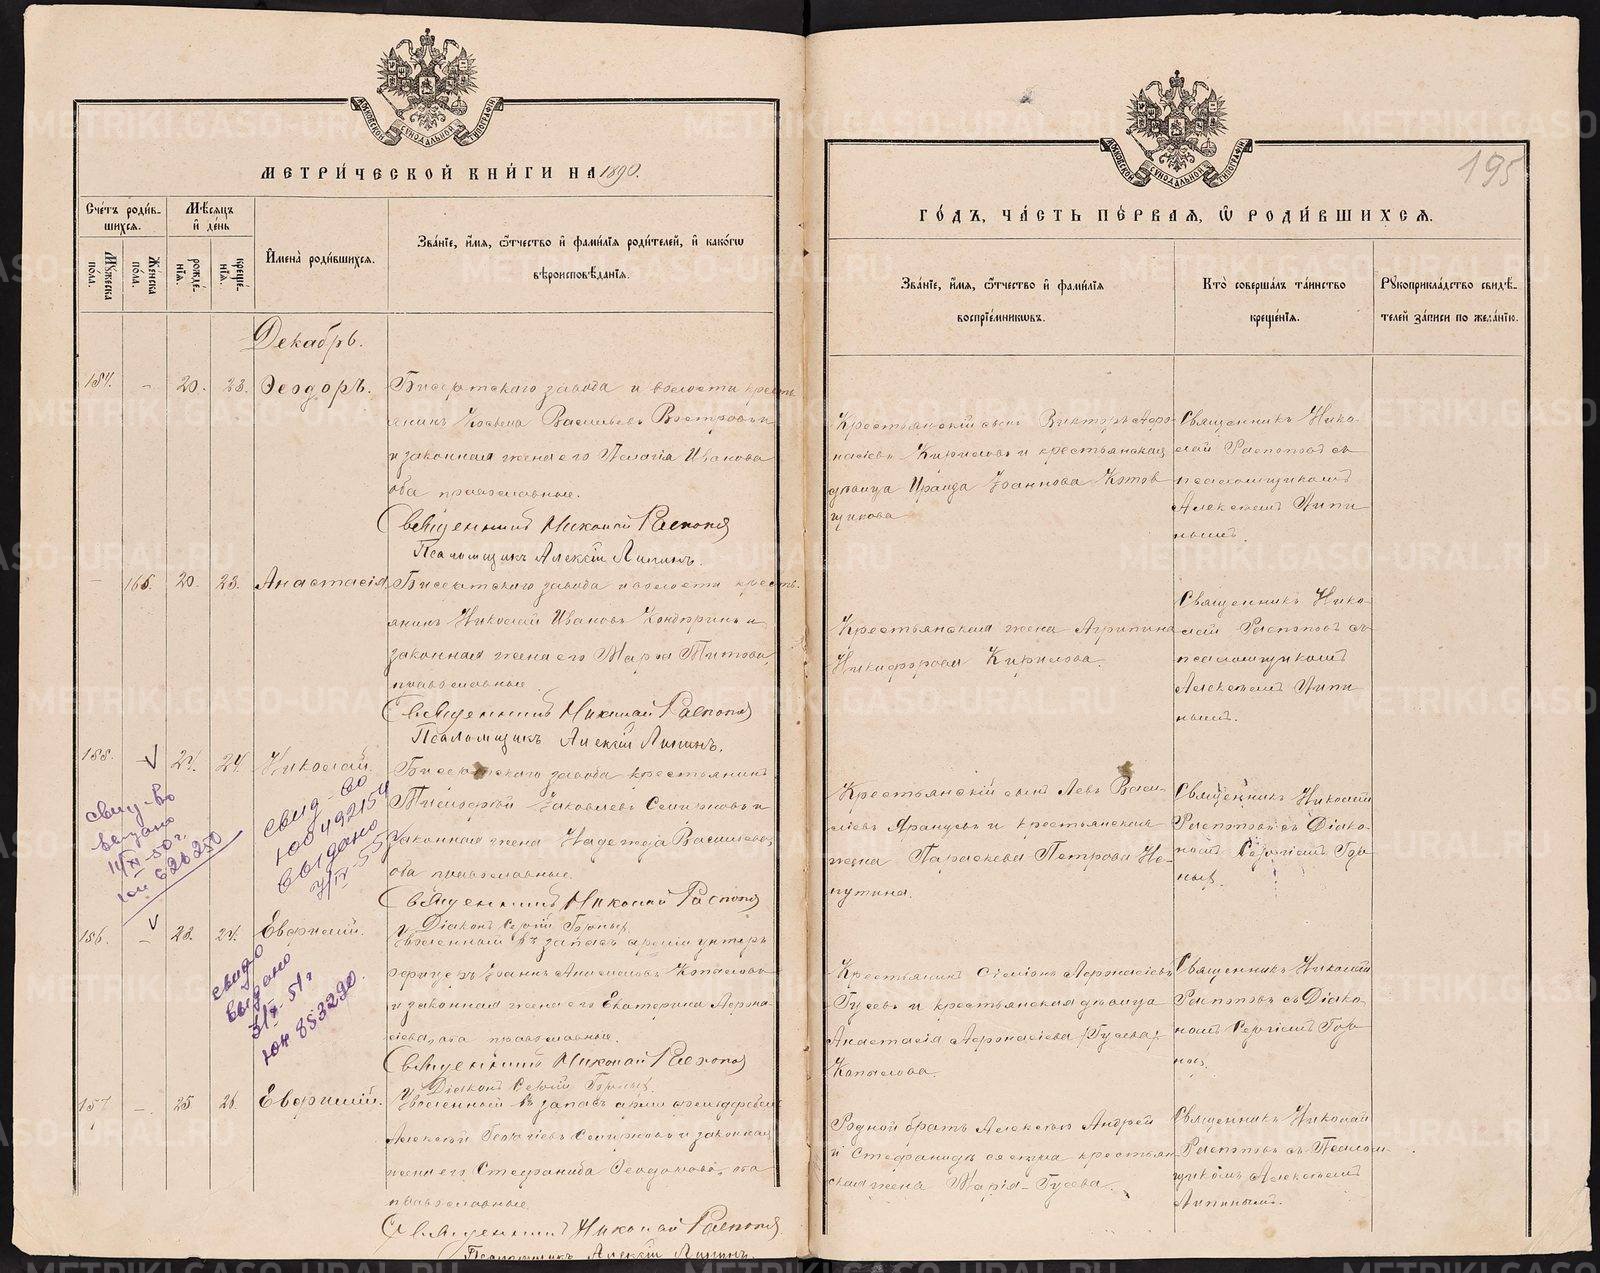 МЕТРИ́ЧЕСКОЙ КНИ́ГИ НА 1890.
МОСКОВСКОЙ СУНОДАЛЬНОЙ ТИПОГРАФІИ
Сче́тъ роди́в-
шихсѧ.
Мѣ́сѧцъ
и҆ де́нь
Му́жеска по́ла.
Же́нска по́ла.
рожде́-
нїѧ.
креще́-
нїѧ.
И҆мена̀ роди́вшихсѧ.
Зва́нїе, и҆́мѧ, ѻ҆́тчество и҆ фами́лїѧ роди́телей, и҆ како́гѡ
вѣроисповѣ́данїѧ.
Декабрь.
154. - 20. 23. Ѳеодоръ.
Бисертскаго завода и волости кресть
янинъ Козьма Васильевъ Вѣстровъ и
и законная жена его Пелагія Иванова
оба православные.
Священникъ Николай Распоповъ
Псаломщикъ Алексій Липинъ.
- 165. 20. 23. Анастасія
Бисертскаго завода и волости кресть
янинъ Николай Ивановъ Кондринъ и
законная жена его Марѳа Титова,
православные
Священникъ Николай Распоповъ
Псаломщикъ Алексій Липинъ.
155. 24. 24. Николай.
Бисертскаго завода крестьянинъ
Тимоѳей Іаковлевъ Смирновъ и
законная жена Надежда Васильева,
оба православные.
Священникъ Николай Распоповъ
Діаконъ Сергій Горныхъ
свид-во
выдано
11/XI-50 г.
юи 626250
свид-во
100492154
выдано
7/IX-55
156. - 23. 24. Евѳимій.
Уволенный въ запасъ арміи унтеръ
офицеръ Іоаннъ Анисимовъ Копыловъ
и законная жена его Екатерина Аѳона-
сіева, оба православные.
Священникъ Николай Распоповъ
Діаконъ Сергій Горныхъ
свидо
выдано
3/X-51 г
юн 853290.
157 - 25. 26. Евѳимій.
Уволенный въ запасъ арміи
Алексѣй Георгіевъ Смирновъ и законная
жена его Стефанида Ѳеодотова, оба
православные.
Священникъ Николай Распоповъ
Псаломщикъ Алексій Липинъ.
195
МОСКОВСКОЙ СУНОДАЛЬНОЙ ТИПОГРАФІИ
ГО́ДЪ, ЧА́СТЬ ПЕ́РВАѦ, Ѡ҆ РОДИ́ВШИХСѦ.
Зва́нїе, и҆́мѧ, ѻ҆́тчество и҆ фами́лїѧ
воспрїе́мниковъ.
Кто̀ соверша́лъ та́инство
креще́нїѧ.
Рукоприкла́дство свидѣ́-
телей за́писи по жела́нїю.
Крестьянскій сынъ Викторъ Аѳо-
насіевъ Кириловъ и крестьянская
дѣвица Ираида Іоаннова Котов
щикова
Священникъ Нико-
лай Распоповъ съ
псаломщикомъ
Алексѣемъ Липи
нымъ.
Крестьянская жена Агрипина
Никифорова Кирилова
Священникъ Нико-
лай Распоповъ съ
псаломщикомъ
Алексѣемъ Липи
нымъ.
Крестьянскій сынъ Левъ Васи-
ліевъ Аранцевъ и крестьянская
жена Параскева Петрова Не-
путина.
Священникъ Николай
Распоповъ съ Діако-
номъ Сергіемъ Гор-
ныхъ.
Крестьянинъ Сімеонъ Аѳонасіевъ
Гусевъ и крестьянская дѣвица
Анастасія Аѳонасіева (Гусева)
Копылова.
Священникъ Николай
Распоповъ съ Діако-
номъ Сергіемъ Гор-
ныхъ
Родной братъ Алексѣя Андрей
и Стефаниды сестра крестьян
ская жена Марія Гусева.
Священникъ Николай
Распоповъ съ Псалом-
щикомъ Алексѣемъ
Липинымъ.
METRIKI.GASO-URAL.RU